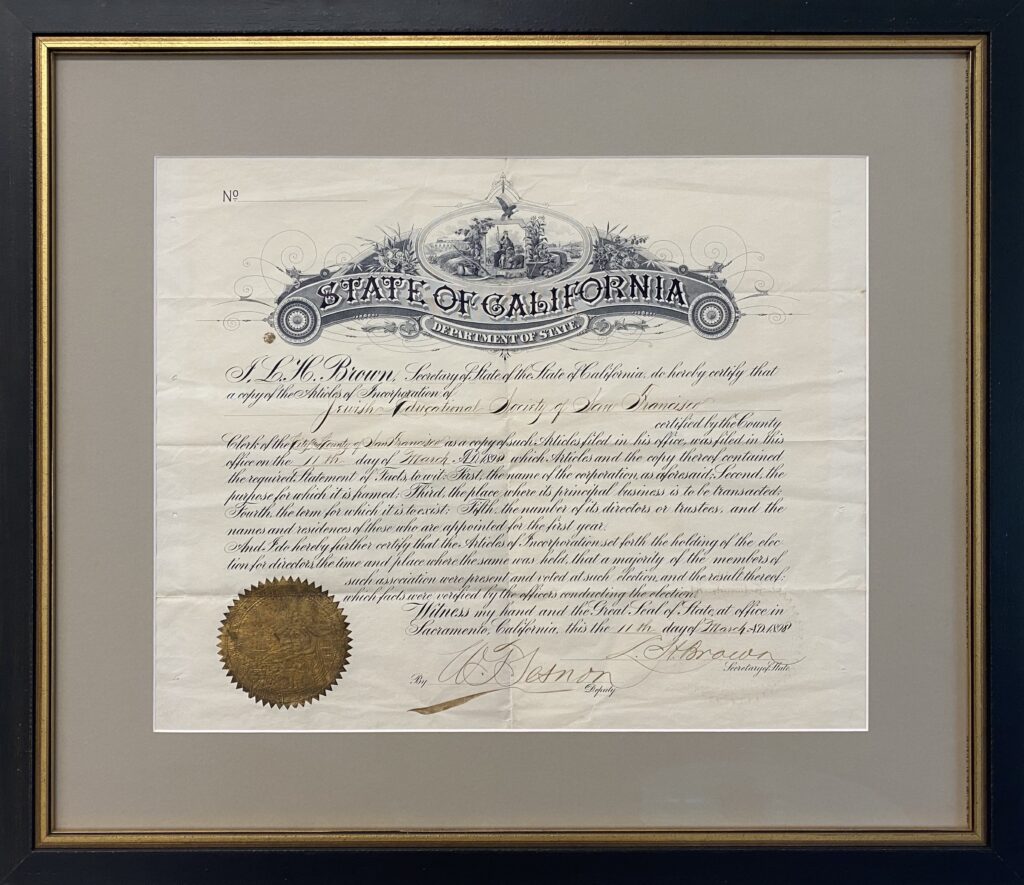 No
STATE OF CALIFORNIA
DEPARTMENT OF STATE
I, L. H. Brown, Secretary of State of the State of California, do hereby certify that
a copy of the Articles of Incorporation of
Jewish Educational Society of San Francisco
certified by the County
Clerk of the City & County of San Francisco as a copy of such Articles filed in his office, was filed in this
office on the 11th day of March A.D. 1898 which Articles and the copy thereof contained
the required Statement of Facts, to wit: First, the name of the corporation, as aforesaid; Second, the
purpose for which it is framed; Third, the place where its principal business is to be transacted;
Fourth, the term for which it is to exist; Fifth, the number of its directors or trustees, and the
names and residences of those who are appointed for the first year.
And I do hereby further certify that the Articles of Incorporation set forth the holding of the elec
tion for directors, the time and place where the same was held, that a majority of the members of
such association were present and voted at such election, and the result thereof;
which facts were verified by the officers conducting the election.
Witness my hand and the Great Seal of State at office in
Sacramento, California, this the 11th day of March A.D. 1898
L. H. Brown
Secretary of State
By
Deputy